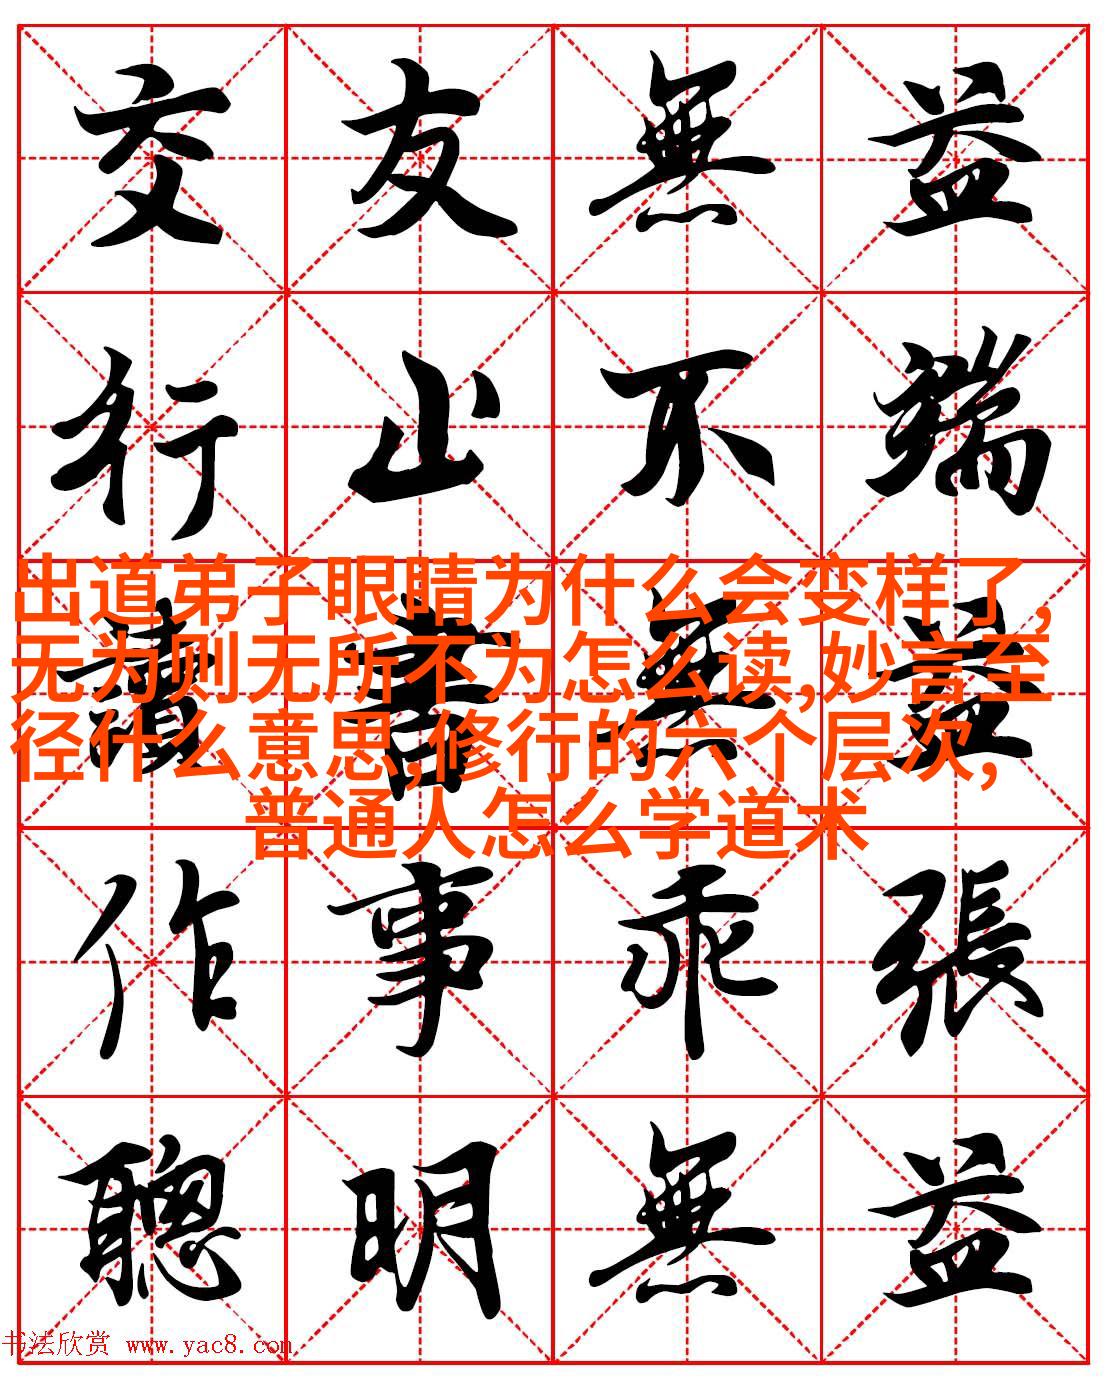 交友無益
行止不端
讀書無益
作事乖張
聰明無益
出道弟子眼睛为什么会变样了,
无为则无所不为怎么读,妙言至
径什么意思,修行的六个层次,
普通人怎么学道术
书法欣赏 www.yac8.com